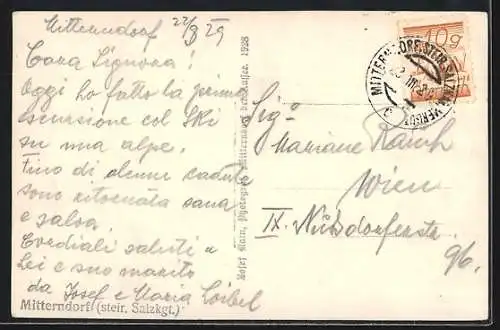 Mitterndorf 22/3 29
Cara Signora!
Oggi ho fatto la prima
escursione col Ski
su una alpe.
Fino di alcune cadute
sono ritornata sana
e salva.
Cordiali saluti a
Lei e suo marito
da Josef e Maria Loibel
Mitterndorf (steir. Salzkgt.)
Josef Klain, Photograph, Mitterndorf bei Aussee. 1928
10g
MITTERNDORF, STEIR. SALZKAMMERGUT
Sigra
Mariane Rauch
Wien
IX. Nussdorferstr.
96.